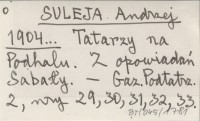 SULEJA. Andrzej
1904... Tatarzy na
Podhalu. Z opowiadań
Sabały. — Gaz. Podtatrz.
2, nry 29, 30, 31, 32, 33.